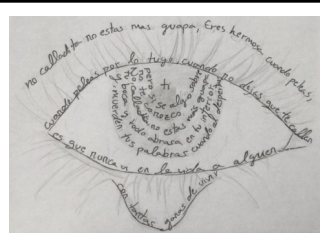 no calladita no estas mas guapa, Eres hermosa cuando peleas
cuando peleas por lo tuyo, cuando no dejas que te callen
ti
pero si se algo sobre
no te conozco.
calladita no estas mas guapa
y tus palabras cuando
es que nunca vi en la vida a alguien
con tantas ganas de vivir